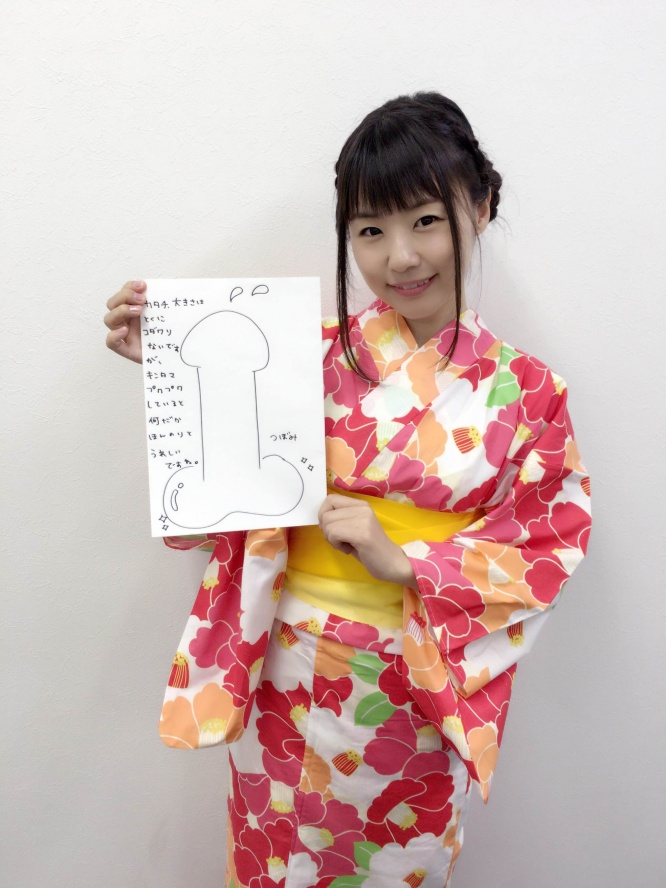 カタチ、大きさは
とくに
コダワリ
ないです
が、
キンタマ
プクプク
していると
何だか
ほんのりと
うれしい
ですね。
つぼみ